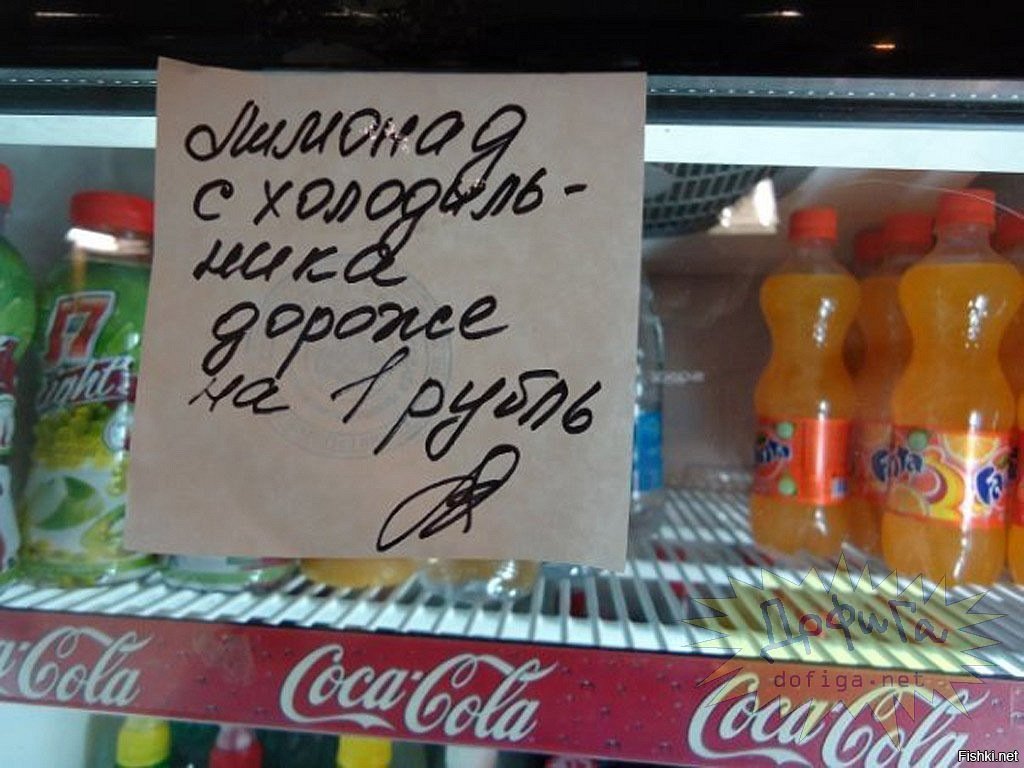 Лимонад
с холодиль-
ника
дороже
на 1 рубль
17
ight
Fanta
Fanta
Fa
a-Cola
Coca-Cola
Coca-Cola
Дофига
dofiga.net
Fishki.net